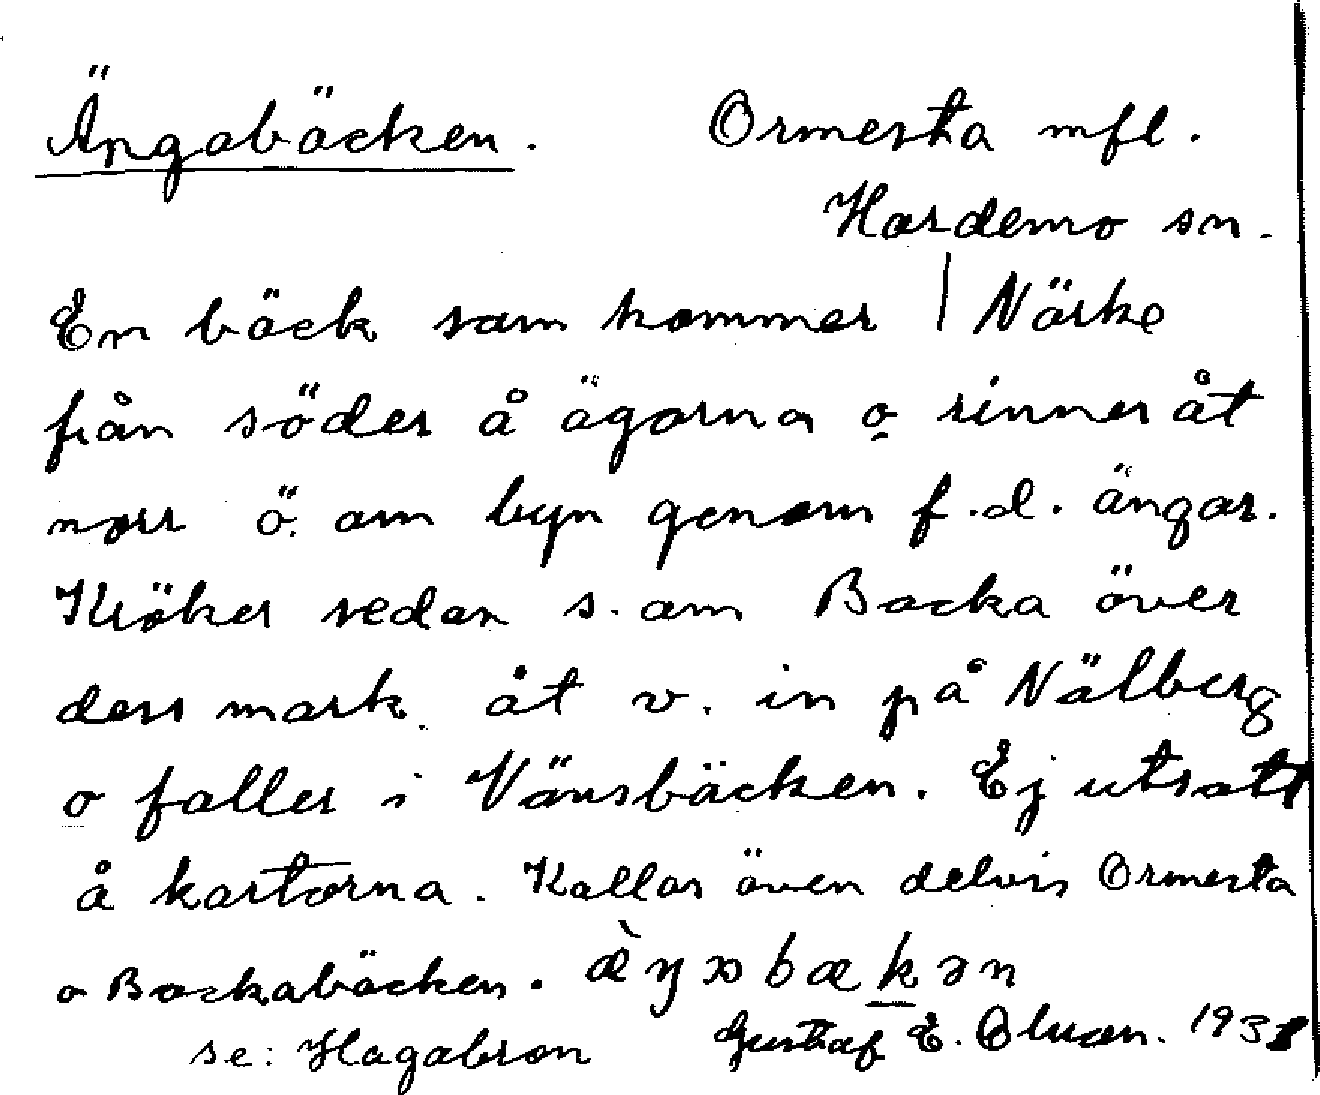 Ängabäcken. Ormesta mfl.
Hardemo sn.
En bäck som kommer | Närke
från söder å ägorna o rinner åt
norr ö. om byn genom f.d. ängar.
Kröker sedan s. om Backa över
dess mark åt v. in på Nälberg
o faller i Vänsbäcken. Ej utsatt
å kartorna. Kallas även delvis Ormesta
o Backabäcken. æ̀ŋɔbækən
se: Hagabron Gustaf E. Olson.